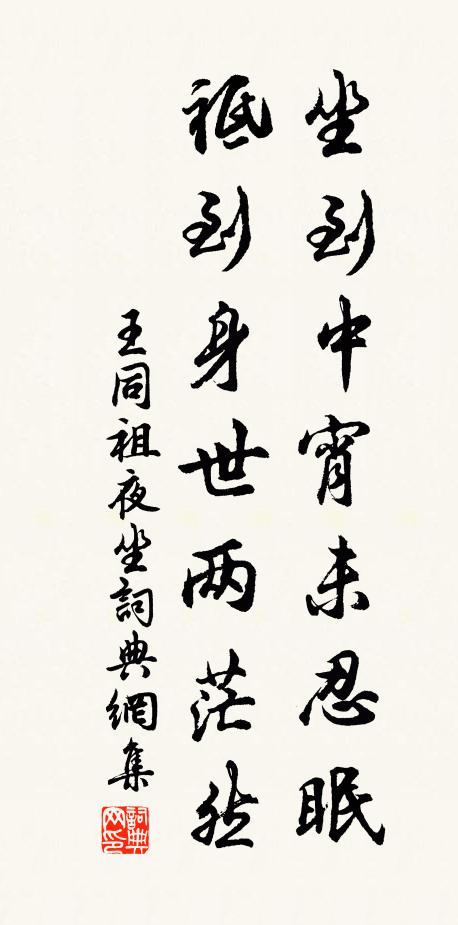 坐到中宵未忍眠
祗到身世两茫然
王同祖夜坐詞典網集
詞典网印